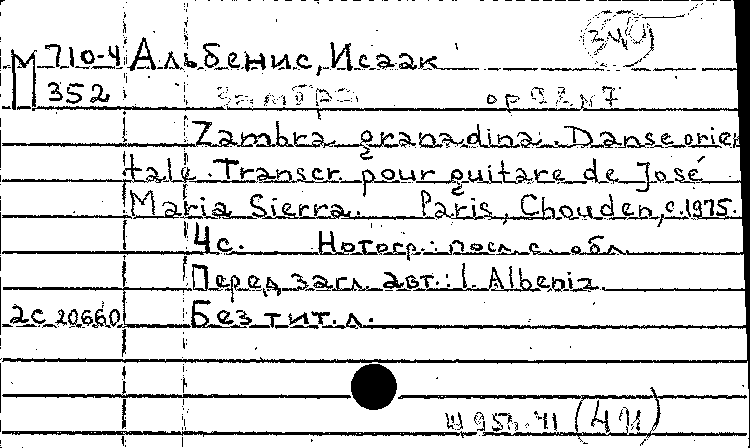 340
М 710-4 Альбенис, Исаак
352 Замбра ор 92 №7
Zambra granadina. Danse orien
tale. Transcr. pour guitare de José
Maria Sierra. Paris, Chouden, c.1975.
4с. Нотогр.: посл. с. обл.
Перед загл. авт.: I. Albeniz.
2с 20660 Без тит. л.
(4И)